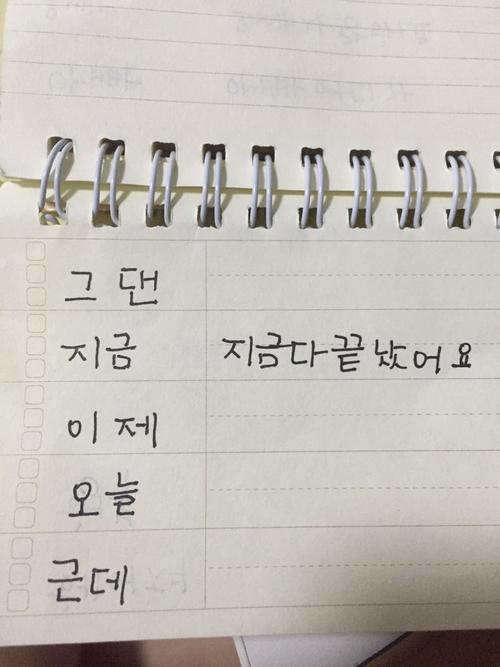 그댄
지금 지금다끝났어요
이제
오늘
근데